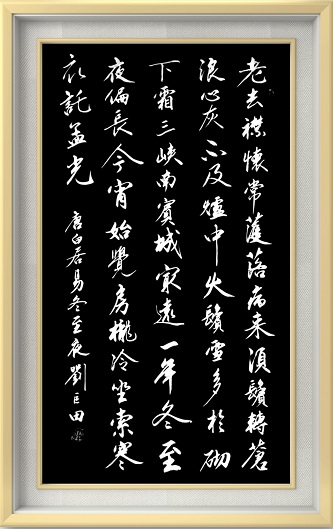 老去襟懷常濩落病来須鬢轉蒼
浪心灰不及爐中火鬢雪多於砌
下霜三峽南賓城最遠一年冬至
夜偏長今宵始覺房櫳冷坐索寒
衣託孟光 唐白居易冬至夜劉巨田